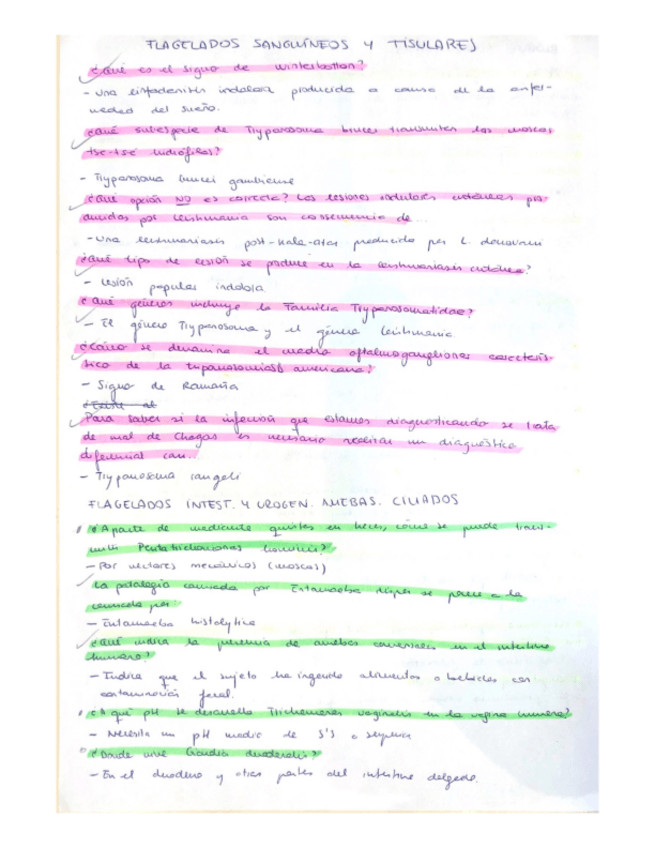 FLAGELADOS SANGUÍNEOS Y TISULARES
¿Qué es el signo de winterbottom?
- Una linfadenitis indolora producida a causa de la enfer-
medad del sueño.
¿Qué subespecie de Trypanosoma brucei transmiten las moscas
tse-tsé hidrófilas?
- Trypanosoma brucei gambiense
¿Qué opción NO es correcta? Las lesiones nodulares cutáneas pro-
ducidas por leishmania son consecuencia de...
- Una leishmaniasis post-kala-azar producida por L. donovani
¿Qué tipo de lesión se produce en la leishmaniasis cutánea?
- Lesión papular indolora.
¿Qué géneros incluye la Familia Trypanosomatidae?
- El género Trypanosoma y el género Leishmania
¿Cómo se denomina el oftalmoganglionar caracterís-
tico de la americana?
- Signo de Romaña
Para saber si la infección que estamos diagnosticando se trata
de mal de Chagas es necesario realizar un diagnóstico
diferencial con...
- Trypanosoma rangeli
FLAGELADOS INTEST. Y UROGEN. AMEBAS. CILIADOS
¿Aparte de mediante quistes en heces, cómo se puede trans-
mitir Pentatrichomonas hominis?
- Por vectores mecánicos (moscas)
La patología causada por Entamoeba dispar se parece a la
causada por:
- Entamoeba histolytica
¿Qué indica la presencia de amebas comensales en el intestino
humano?
- Indica que el sujeto ha ingerido alimentos o bebidas con
contaminación fecal.
¿A qué pH se desarrolla Trichomonas vaginalis en la vagina humana?
- Necesita un pH medio de 5'5 o
¿Donde vive Giardia duodenalis?
- En el duodeno y otras partes del intestino delgado.